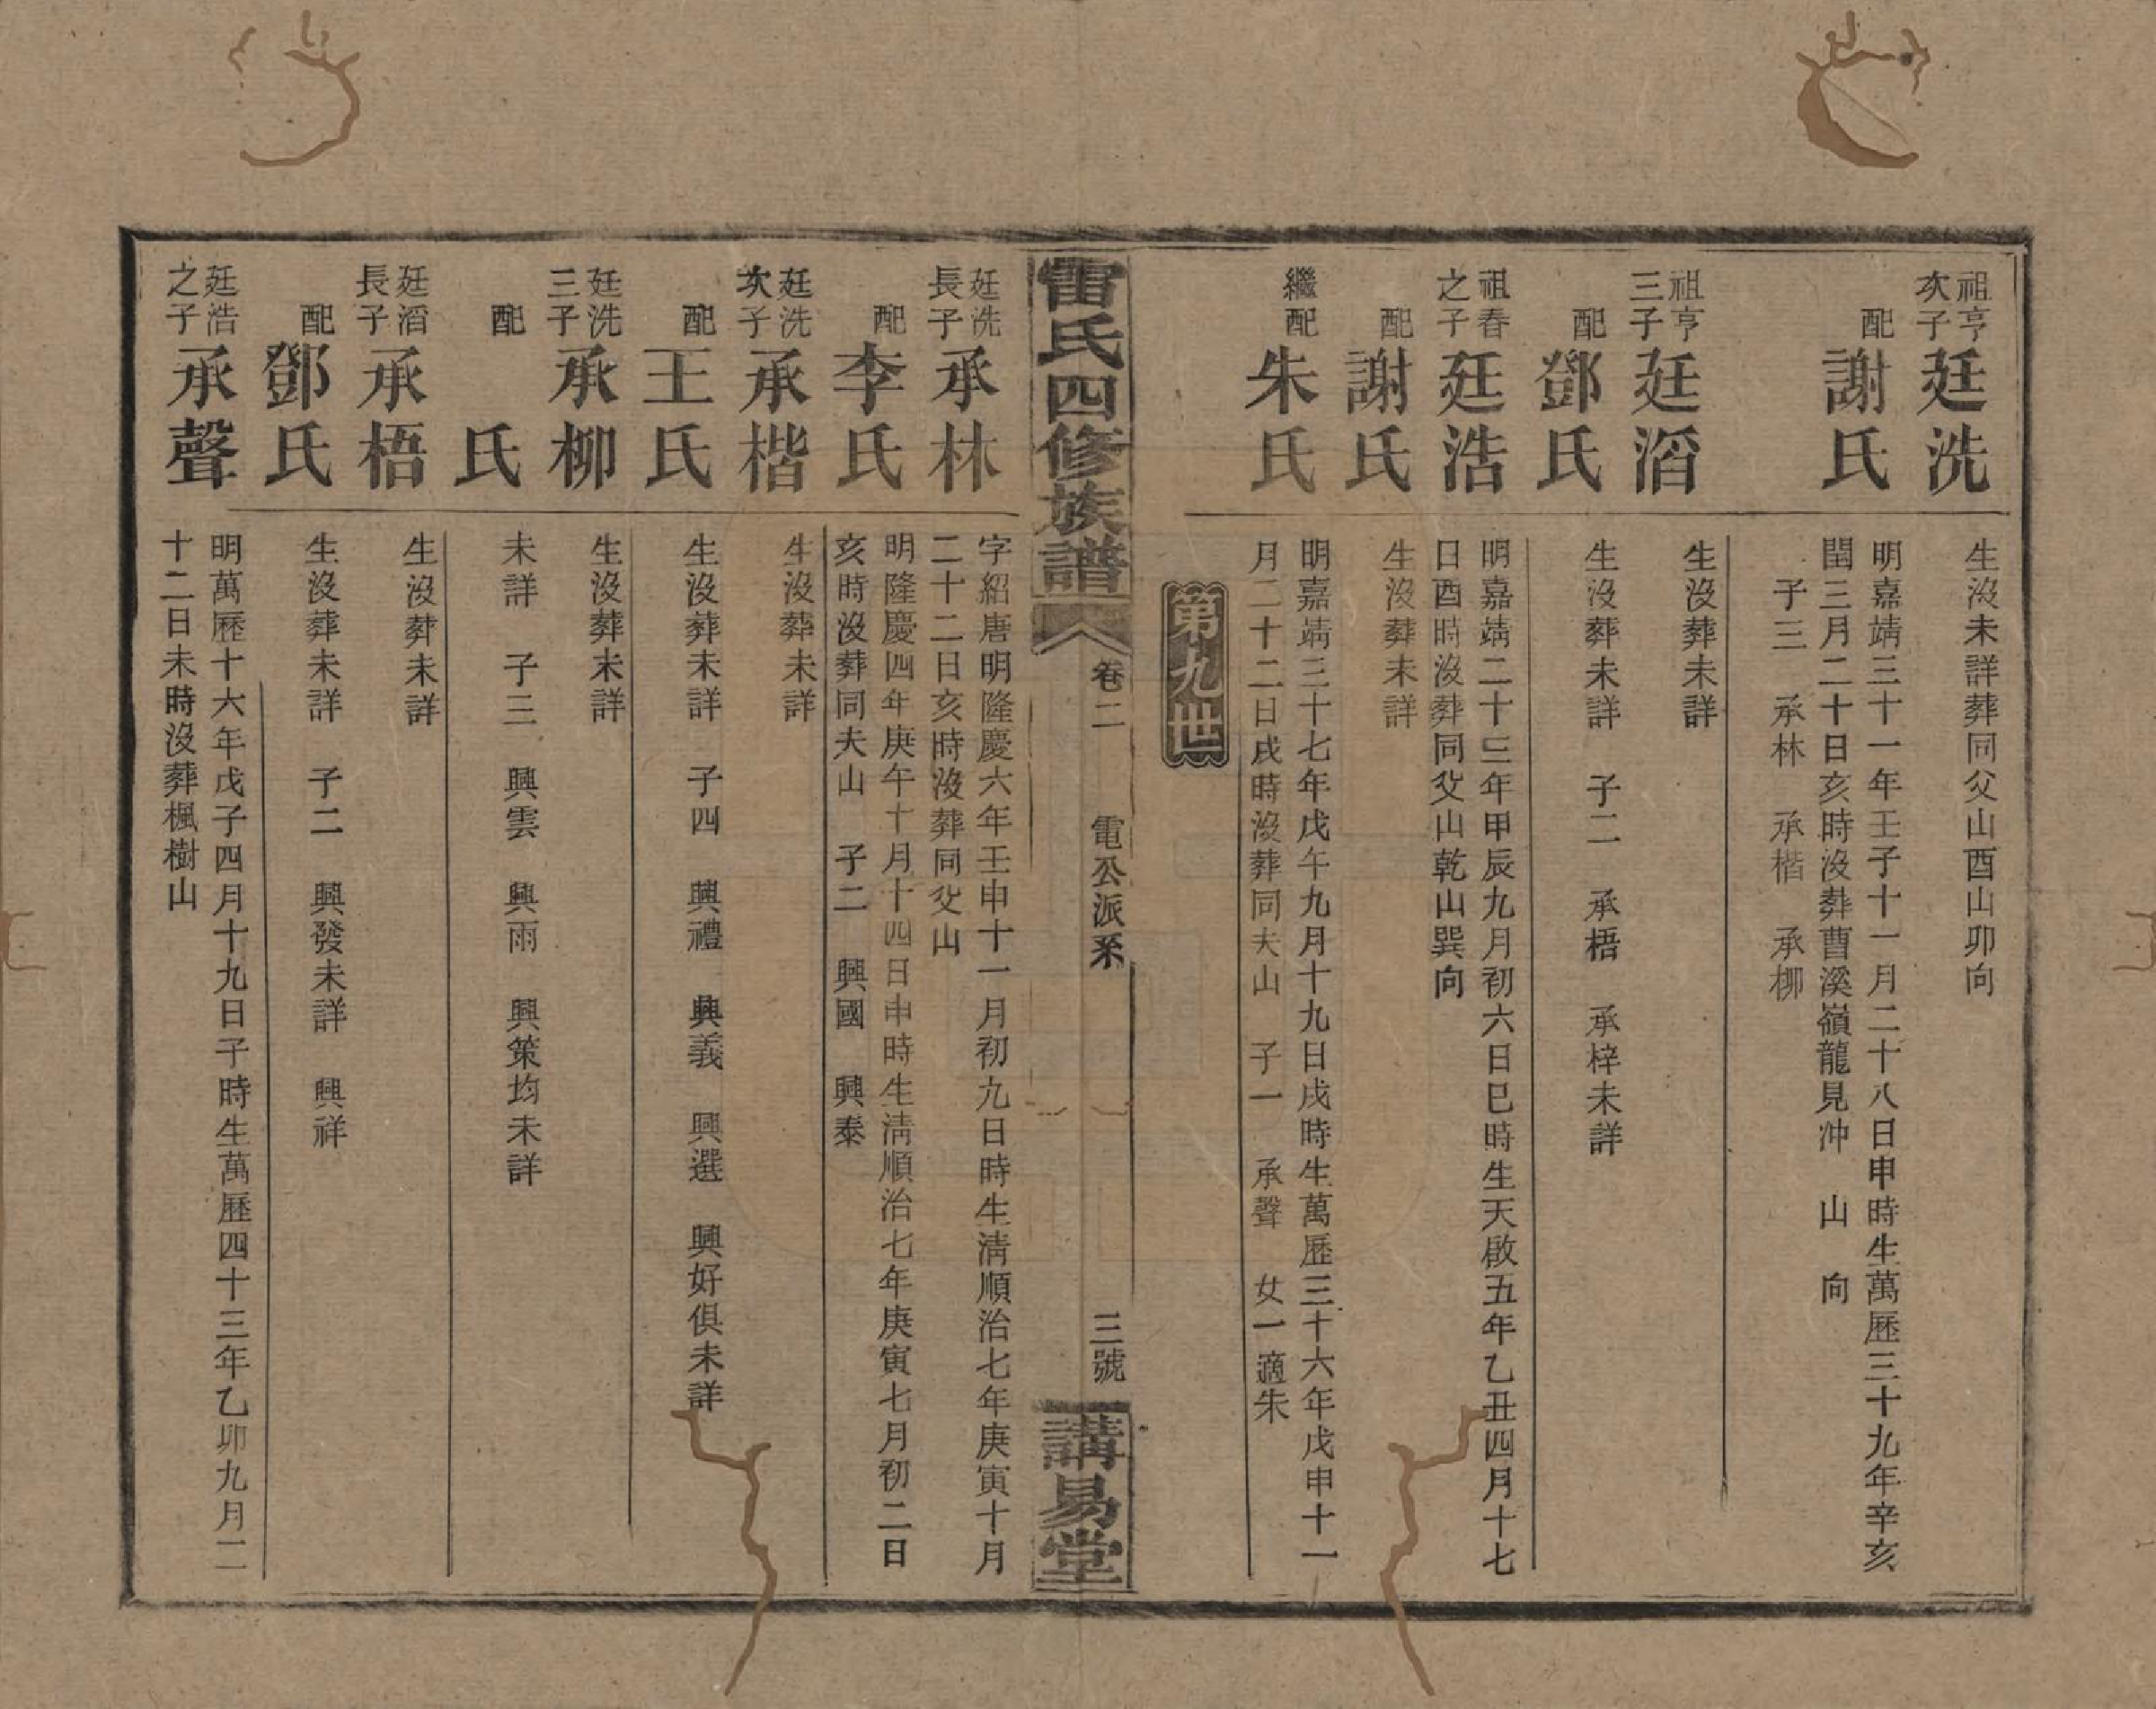 祖亨
次子
廷洗
生沒未詳葬同父山酉山卯向
配
謝氏
明嘉靖三十一年壬子十一月二十八日申時生萬歷三十九年辛亥
閏三月二十日亥時沒葬曹溪嶺龍見冲　山　向
子三　承林　承楷　承柳
祖亨
三子
廷滔
生沒葬未詳
配
鄧氏
生沒葬未詳　子二　承梧　承梓未詳
祖春
之子
廷浩
明嘉靖二十三年甲辰九月初六日巳時生天啟五年乙丑四月十七
日酉時沒葬同父山乾山巽向
配
謝氏
生沒葬未詳
繼配
朱氏
明嘉靖三十七年戊午九月十九日戌時生萬歷三十六年戊申十一
月二十二日戌時沒葬同夫山　子一　承聲　女一適朱
第九世
雷氏四修族譜
卷二
電公派系
三號
講易堂
廷洗
長子
承林
字紹唐明隆慶六年壬申十一月初九日時生清順治七年庚寅十月
二十二日亥時沒葬同父山
配
李氏
明隆慶四年庚午十月十四日申時生清順治七年庚寅七月初二日
亥時沒葬同夫山　子二　興國　興泰
廷洗
次子
承楷
生沒葬未詳
配
王氏
生沒葬未詳　子四　興禮　興義　興選　興好俱未詳
廷洗
三子
承柳
生沒葬未詳
配
氏
未詳　子三　興雲　興雨　興策均未詳
廷滔
長子
承梧
生沒葬未詳
配
鄧氏
生沒葬未詳　子二　興發未詳　興祥
廷浩
之子
承聲
明萬歷十六年戊子四月十九日子時生萬歷四十三年乙卯九月二
十二日未時沒葬楓樹山